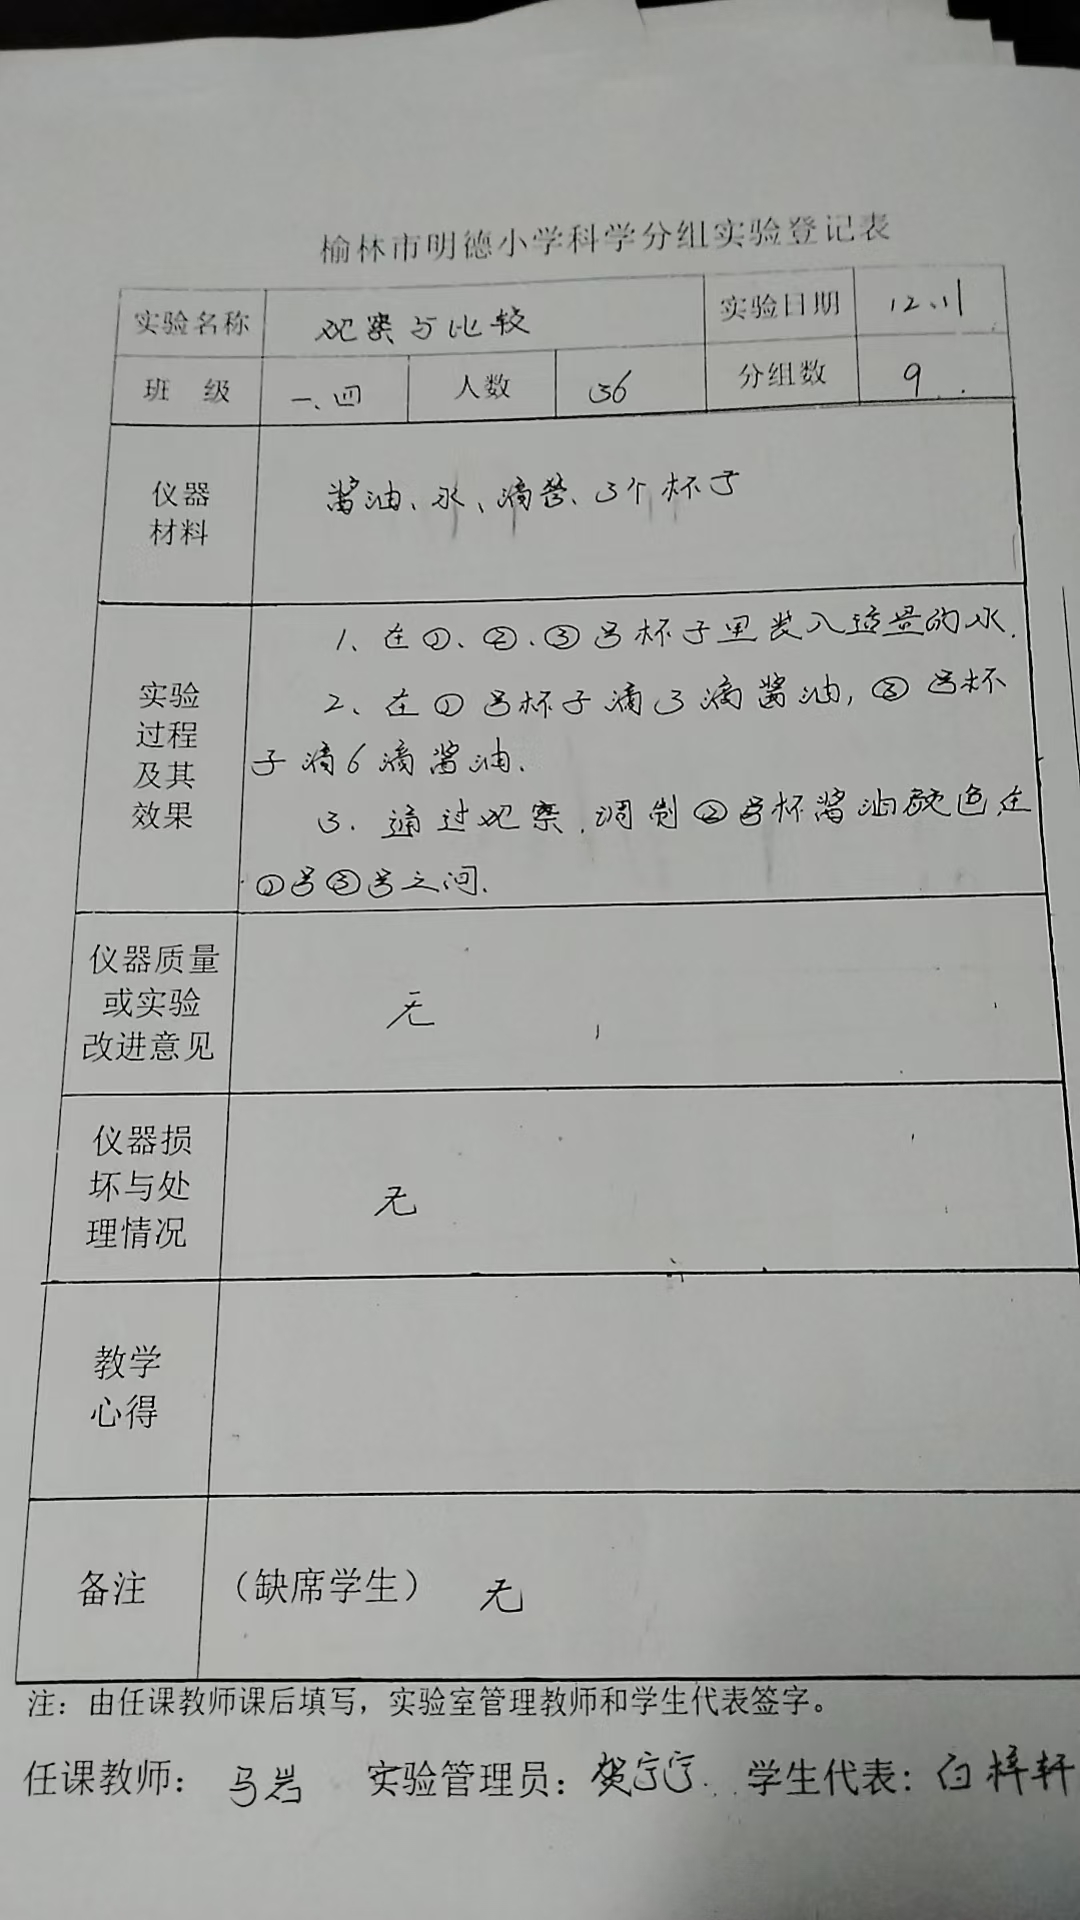 榆林市明德小学科学分组实验登记表
实验名称 观察与比较 实验日期 12.11
班 级 一、四 人数 36 分组数 9
仪器
材料
酱油、水、滴管、3个杯子
实验
过程
及其
效果
1、在①、②、③号杯子里装入适量的水.
2、在①号杯子滴3滴酱油,③号杯
子滴6滴酱油.
3. 通过观察,调制②号杯酱油颜色在
①号③号之间.
仪器质量
或实验
改进意见
无
仪器损
坏与处
理情况
无
教学
心得
备注 （缺席学生） 无
注：由任课教师课后填写，实验室管理教师和学生代表签字。
任课教师： 马岩 实验管理员：贺宁宁. 学生代表：白梓轩